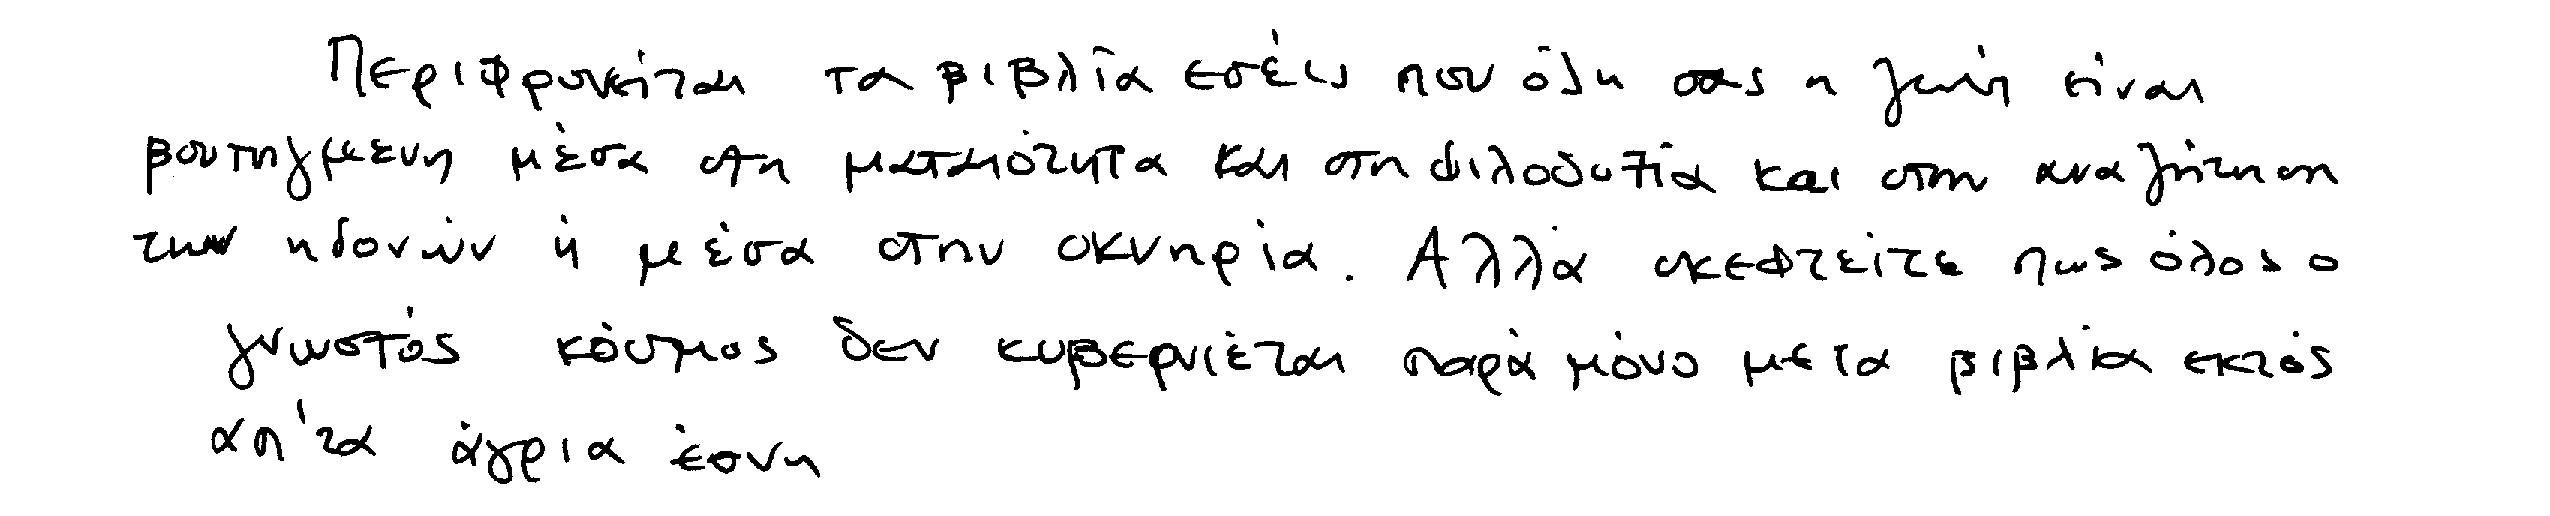 Περιφρονείται τα βιβλία εσείς που όλη σας η ζωή είναι
βουτηγμενη μέσα στη ματαιότητα και στη φιλοδοξία και στην αναζήτηση
των ηδονών ή μέσα στην οκνηρία. Αλλά σκεφτείτε πως όλος ο
γνωστός κόσμος δεν κυβερνιέται παρά μόνο με τα βιβλία εκτός
απ'τα άγρια έθνη